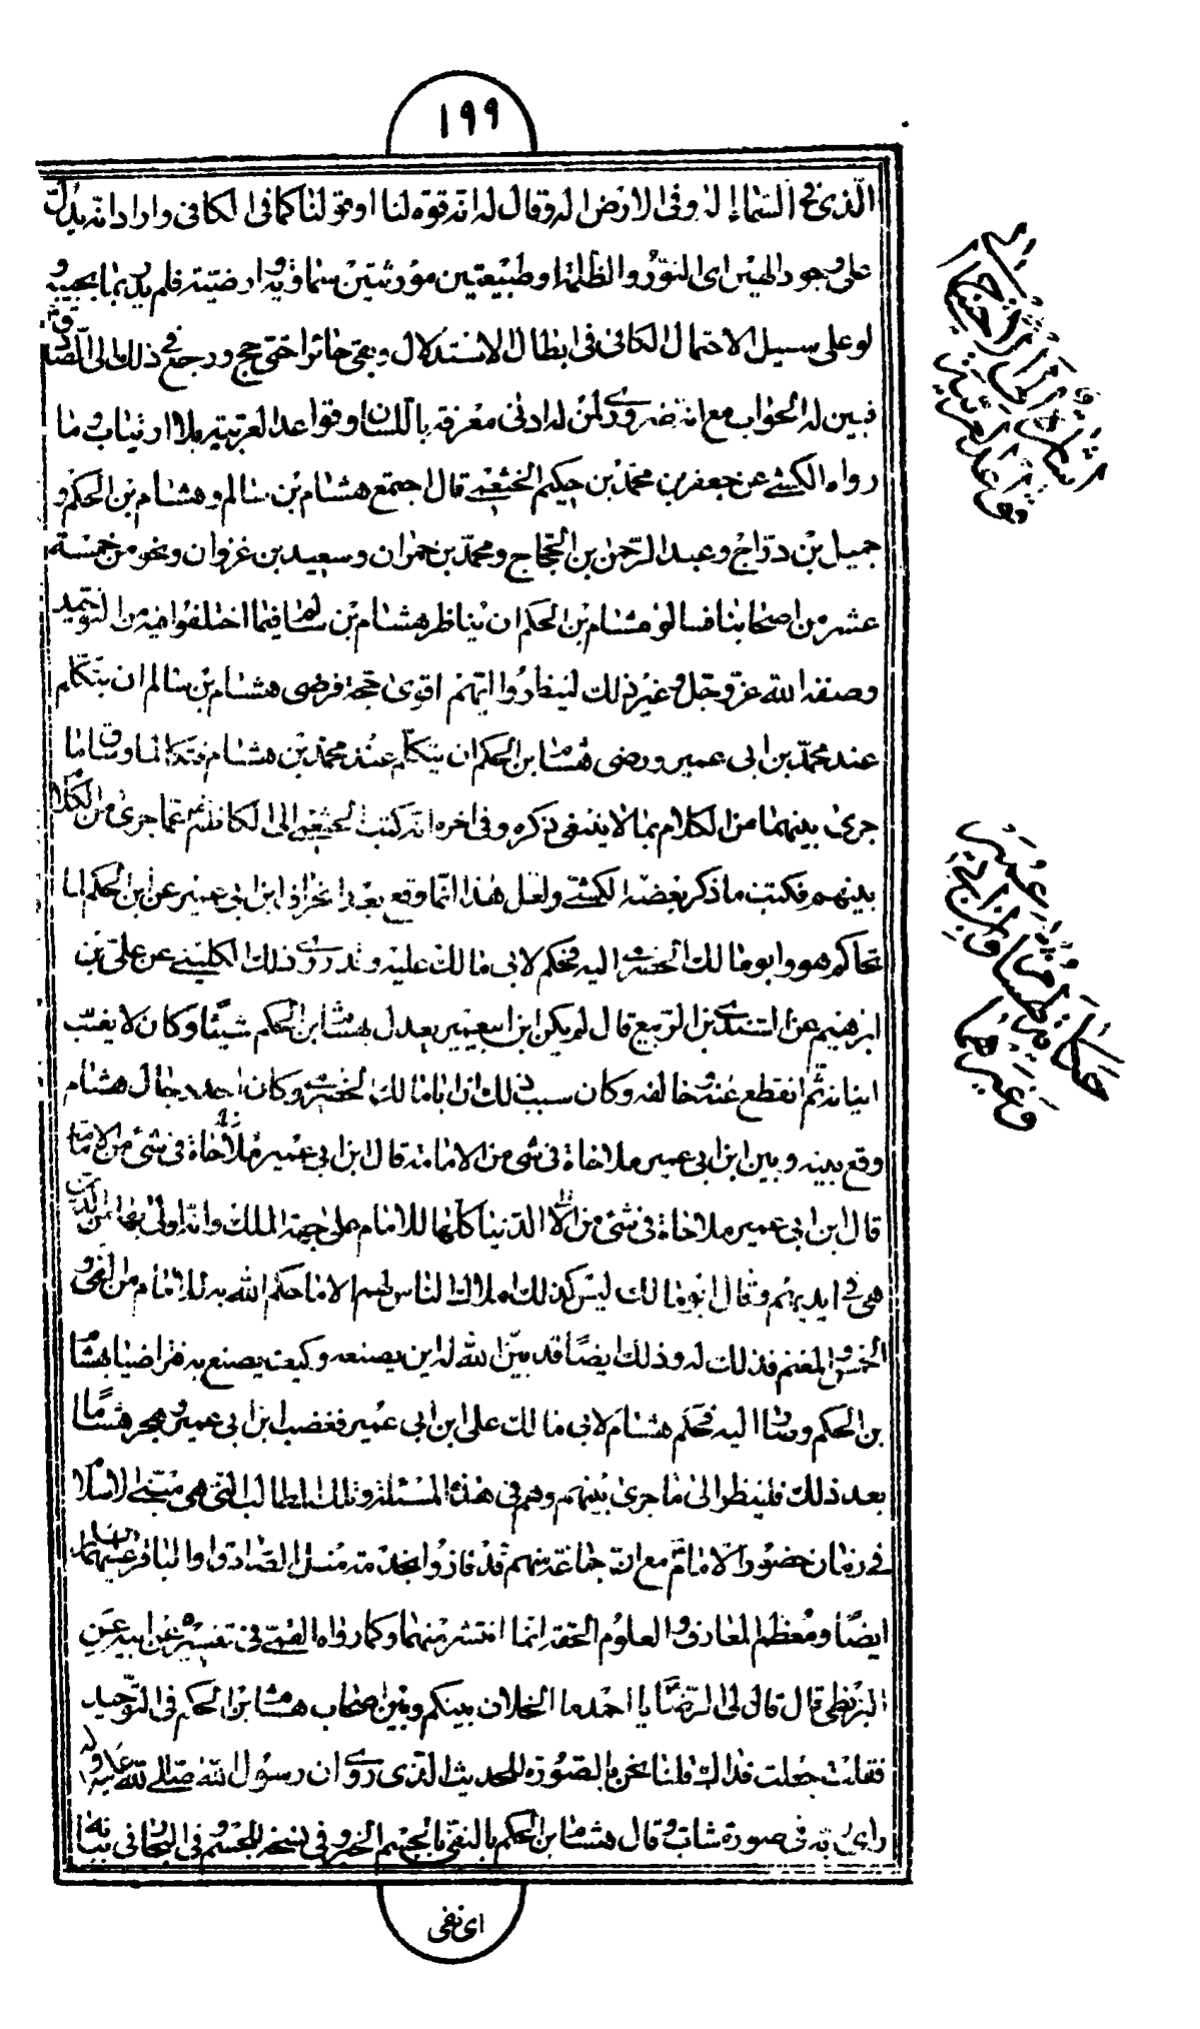 ١٩٩
الّذي في السّماء إله وفي الارض اله وقال له انه قوة لنا او قولنا كما في الكافي واراد انه يدلّ
على وجود الهين اى النّور والظلمة او طبيعتين مؤثرتين سماوية وارضيّة فلم يدر بما يجيبه
لو على سبيل الاحتمال الكافى فى ابطال الاستدلال وبقى حائرا حتّى حج ورجع فى ذلك الى الصّادق
فبين له الجواب مع انه ضرورى لمن له ادنى معرفة باللسان وقواعد العربية بلا ارتياب وما
رواه الكشي عن جعفر بن محمّد بن حكيم الخثعمي قال اجتمع هشام بن سالم وهشام بن الحكم و
جميل بن درّاج وعبد الرّحمن بن الحجّاج ومحمّد بن حمران وسعيد بن غزوان ونحو من خمسة
عشر من اصحابنا فسالوا هشام بن الحكم ان يناظر هشام بن سالم فيما اختلفوا فيه من التوحيد
وصفة الله عزّ وجلّ وغير ذلك لينظروا ايّهم اقوى حجة فرضى هشام بن سالم ان يتكلّم
عند محمّد بن ابى عمير ورضى هشام بن الحكم ان يتكلّم عند محمّد بن هشام فتكالما وساقا ما
جرى بينهما من الكلام بما لا ينبغى ذكره وفى اخره انه كتب الخثعمي الى الكاظم عما جرى من الكلام
بينهم فكتب ما ذكر بعضه الكشّي ولعل هذا انّما وقع بعد انحراف ابن ابى عمير عن ابن الحكم لما
تحاكم هو وابو مالك الحضرمى اليه فحكم لابى مالك عليه وقد روى ذلك الكليني عن علي بن
ابراهيم عن السّندى بن الرّبيع قال لم يكن ابن ابى عمير يعدل هشام بن الحكم شيئا وكان لا يغبّ
اتيانه ثم انقطع عنه وخالفه وكان سبب ذلك ان ابا مالك الحضرمى وكان احد رجال هشام
وقع بينه وبين ابن ابى عمير ملاحاة فى شى من الامامة قال ابن ابى عمير ملاحاة فى شئ من الامامة
قال ابن ابى عمير ملاحاة فى شئ من الا الدّنيا كلّها للامام على جهة الملك وانه اولى بها من الّذين
هى فى ايديهم وقال ابو مالك ليس كذلك املاك النّاس لهم الا ما حكم الله به للامام من الفئ و
الخمس والمغنم فذلك له وذلك ايضًا قد بيّن الله له اين يصنعه وكيف يصنع به فتراضيا بهشام
بن الحكم وصارا اليه فحكم هشام لابى مالك على ابن ابى عمير فغضب ابن ابى عمير وهجر هشامًا
بعد ذلك فلينظر الى ما جرى بينهم وهم فى هذه المسئلة وتلك المطالب التى هى مبنى الاسلام
فى زمان حضور الامام مع ان جماعة منهم قد فازوا بخدمة مثل الصّادق او الباقر عليهما السلام
ايضًا ومعظم المعارف والعلوم الحقة انما انتشر منهما وكما رواه القمّي فى تفسيره عن ابيه عن
البزنطى قال قال لى الرّضا يا احمد ما الخلاف بينكم وبين اصحاب هشام بن الحكم فى التّوحيد
فقلت جعلت فداك قلنا نحن بالصّورة للحديث الّذى روى ان رسول الله صلّى الله عليه واله
راى ربّه فى صورة شابّ وقال هشام بن الحكم بالنفى بالجسم الخبر وفى نسخه للجسم فى البحار فى بيانه
اى نفى
حكاية هشام وابن ابى عمير
وغيرهما